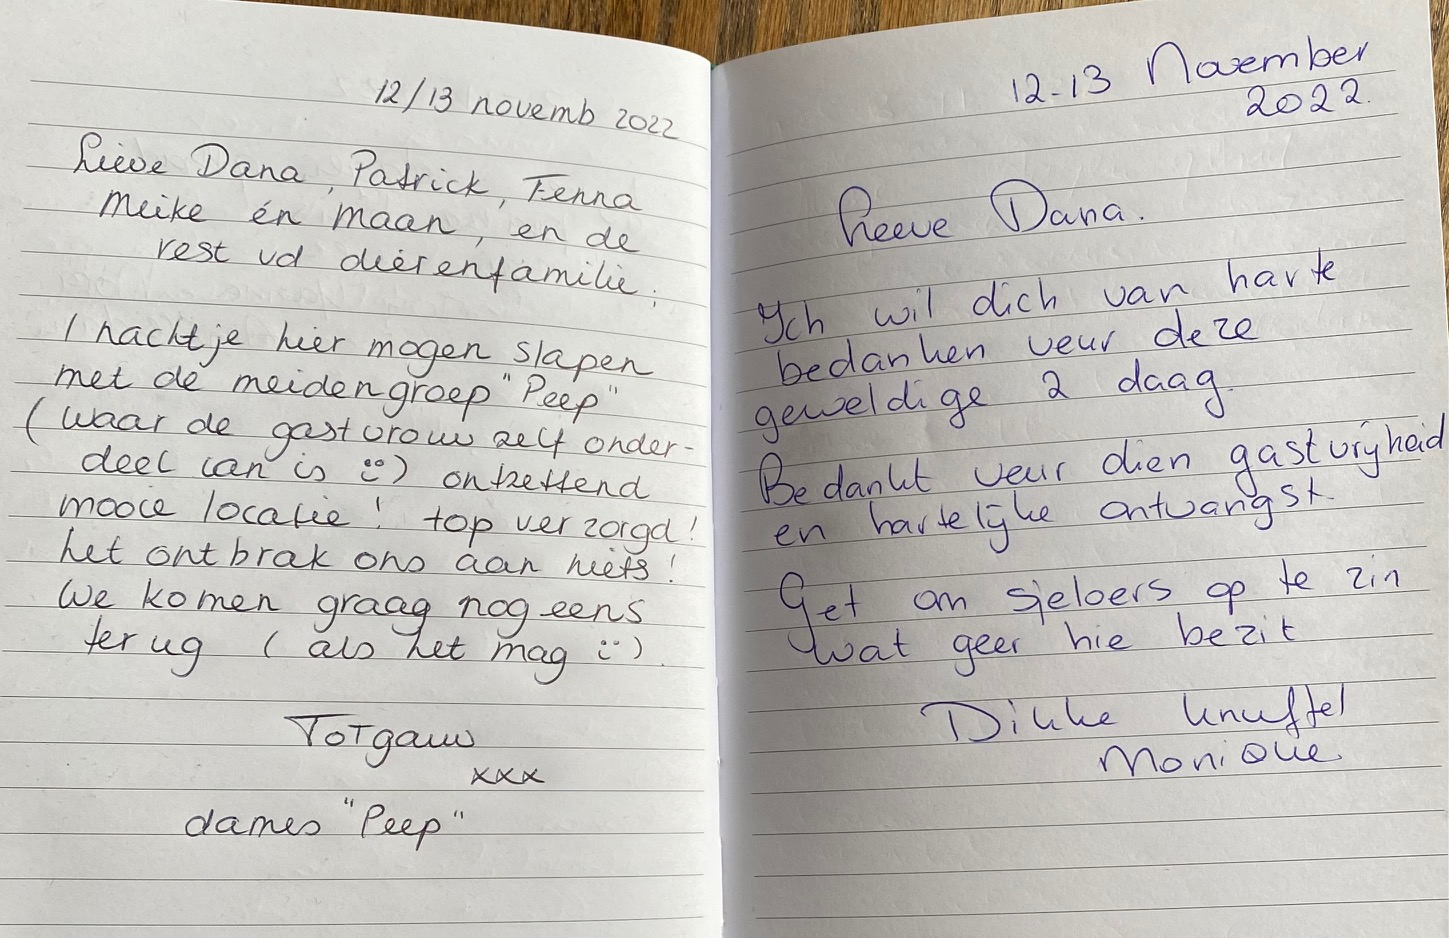 12/13 novemb 2022
Lieve Dana, Patrick, Fenna
Meike én Maan, en de
rest vd dierenfamilie;
1 nachtje hier mogen slapen
met de meidengroep "Peep"
(waar de gastvrouw zelf onder-
deel van is :)) ontzettend
mooie locatie! top verzorgd!
het ontbrak ons aan niets!
We komen graag nog eens
terug (als het mag :)).
Totgauw
xxx
dames "Peep"
12-13 November
2022.
Leeve Dana.
Ich wil dich van harte
bedanken veur deze
geweldige 2 daag.
Bedankt veur dien gastvrijheid
en hartelijke ontvangst.
Get om sjeloers op te zin
wat geer hie bezit
Dikke knuffel
Monique.